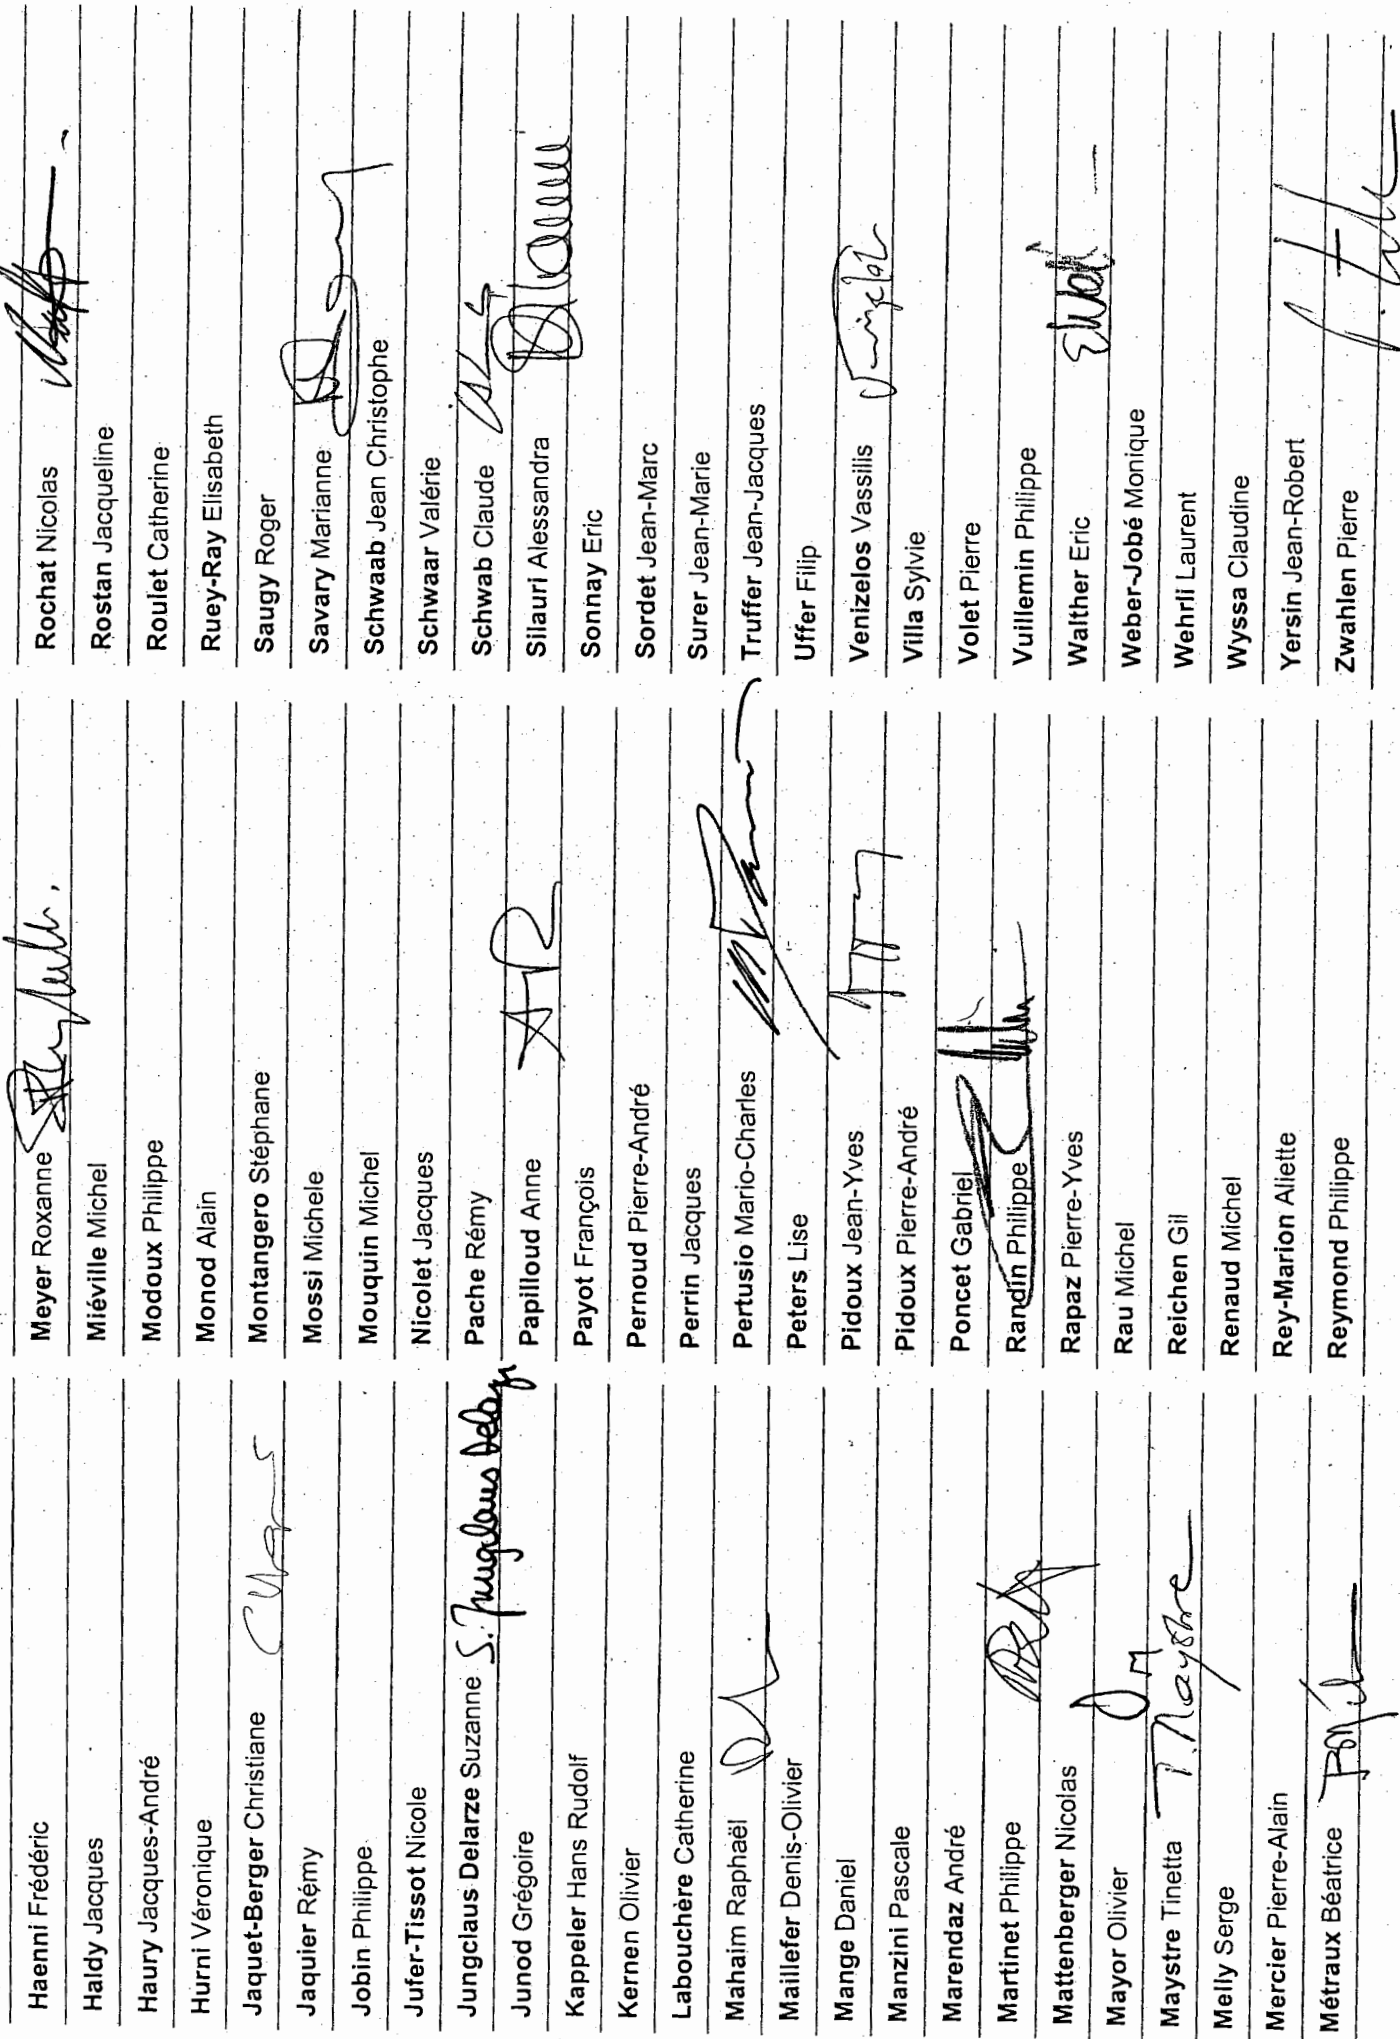 Haenni Frédéric
Haldy Jacques
Haury Jacques-André
Hurni Véronique
Jaquet-Berger Christiane
Jaquier Rémy
Jobin Philippe
Jufer-Tissot Nicole
Jungclaus Delarze Suzanne S. Jungclaus Delarze
Junod Grégoire
Kappeler Hans Rudolf
Kernen Olivier
Labouchère Catherine
Mahaim Raphaël
Maillefer Denis-Olivier
Mange Daniel
Manzini Pascale
Marendaz André
Martinet Philippe
Mattenberger Nicolas
Mayor Olivier OM
Maystre Tinetta T. Maystre
Melly Serge
Mercier Pierre-Alain
Métraux Béatrice
Meyer Roxanne
Miéville Michel
Modoux Philippe
Monod Alain
Montangero Stéphane
Mossi Michele
Mouquin Michel
Nicolet Jacques
Pache Rémy
Papilloud Anne
Payot François
Pernoud Pierre-André
Perrin Jacques
Pertusio Mario-Charles
Peters Lise
Pidoux Jean-Yves
Pidoux Pierre-André
Poncet Gabriel
Randin Philippe
Rapaz Pierre-Yves
Rau Michel
Reichen Gil
Renaud Michel
Rey-Marion Aliette
Reymond Philippe
Rochat Nicolas
Rostan Jacqueline
Roulet Catherine
Ruey-Ray Elisabeth
Saugy Roger
Savary Marianne
Schwaab Jean Christophe
Schwaar Valérie
Schwab Claude
Silauri Alessandra
Sonnay Eric
Sordet Jean-Marc
Surer Jean-Marie
Truffer Jean-Jacques
Uffer Filip
Venizelos Vassilis
Villa Sylvie
Volet Pierre
Vuillemin Philippe
Walther Eric
Weber-Jobé Monique
Wehrli Laurent
Wyssa Claudine
Yersin Jean-Robert
Zwahlen Pierre